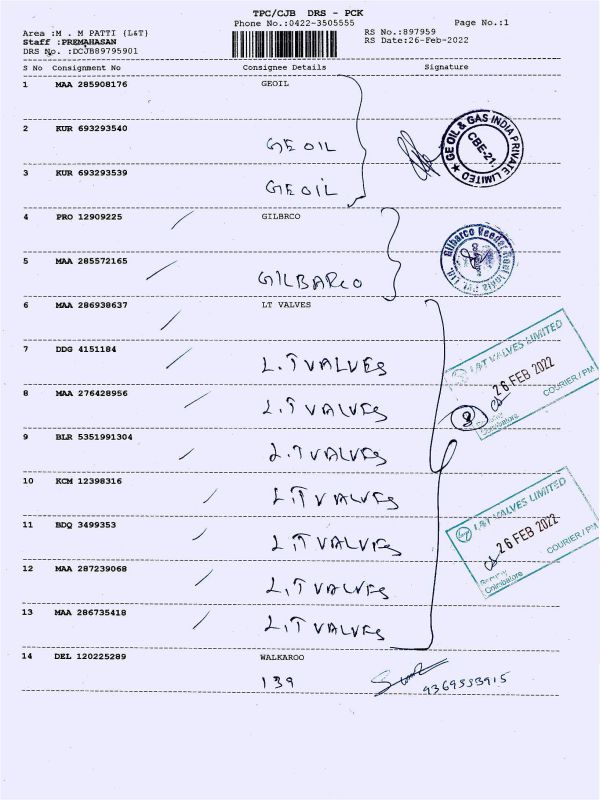 TPC/CJB DRS - PCK
Phone No.:0422-3505555
Page No.:1
Area :M . M PATTI {L&T}
RS No.:897959
Staff :PREMAHASAN
RS Date:26-Feb-2022
DRS No. :DCJB89795901
S No Consignment No Consignee Details Signature
1 MAA 285908176 GEOIL
2 KUR 693293540
GE OIL
GE OIL & GAS INDIA PRIVATE LIMITED
CBE-21.
3 KUR 693293539
GEOIL
4 PRO 12909225 GILBRCO
5 MAA 285572165
GILBARCO
Gilbarco Veeder Root India Pvt. Ltd.
6 MAA 286938637 LT VALVES
7 DDG 4151184
L.T VALVES
L&T VALVES LIMITED
26 FEB 2022
COURIER / PM
Coimbatore
8 MAA 276428956
L.T VALVES
8
9 BLR 5351991304
L.T VALVES
10 KCM 12398316
L.T VALVES
L&T VALVES LIMITED
26 FEB 2022
COURIER / PM
Coimbatore
11 BDQ 3499353
L.T VALVES
12 MAA 287239068
L.T VALVES
13 MAA 286735418
L.T VALVES
14 DEL 120225289 WALKAROO
139
9369553915